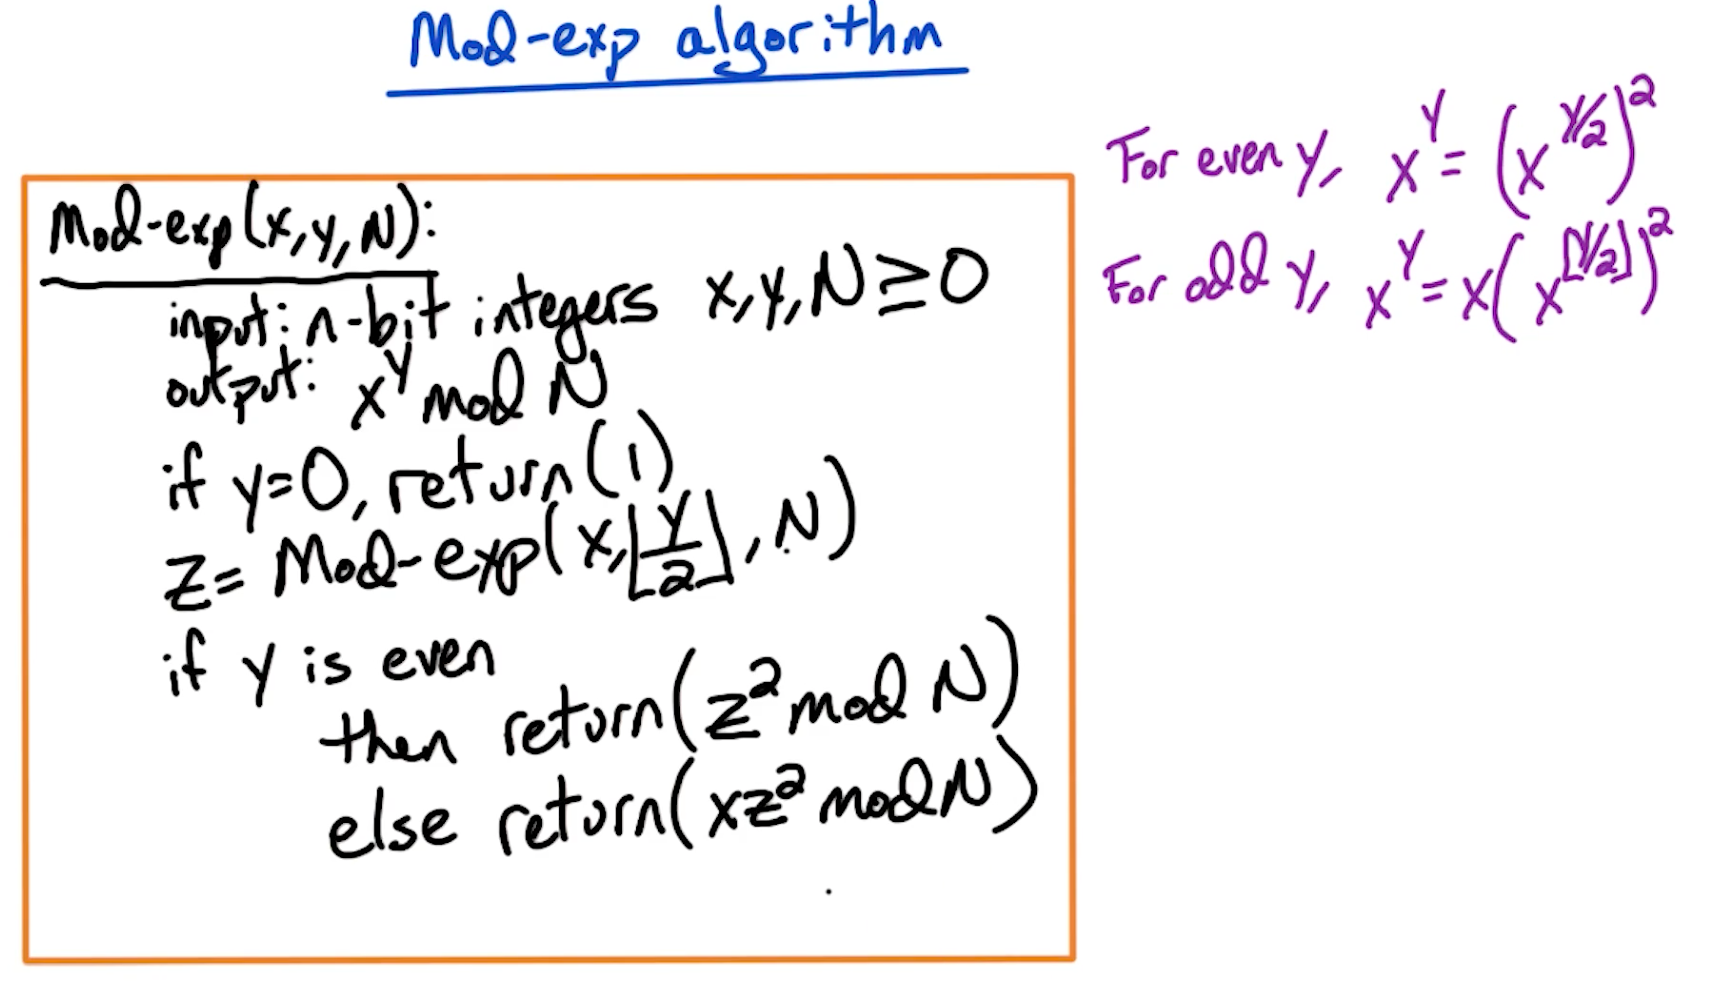 Mod-exp algorithm
Mod-exp(x,y,N):
input: n-bit integers x,y,N≥0
output: x^y mod N
if y=0, return(1)
z= Mod-exp(x,⌊y/2⌋,N)
if y is even
then return(z² mod N)
else return(xz² mod N)
For even y, x^y = (x^(y/2))²
For odd y, x^y = x(x^⌊y/2⌋)²